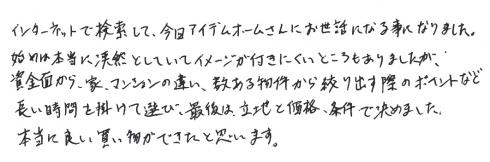 インターネットで検索して、今日アイデムホームさんにお世話になる事になりました。
始めは本当に漠然としていてイメージが付きにくいところもありましたが、
資金面から、家、マンションの違い、数ある物件から絞り出す際のポイントなど
長い時間を掛けて選び、最後は、立地と価格、条件で決めました。
本当に良い買い物ができたと思います。